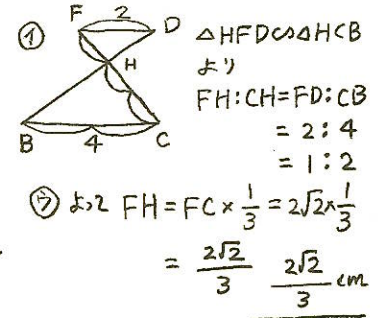 ① F 2 D △HFD∽△HCB
H より
FH:CH=FD:CB
B 4 C = 2:4
= 1:2
ウ よって FH = FC × 1/3 = 2√2 × 1/3
= 2√2/3 2√2/3 cm